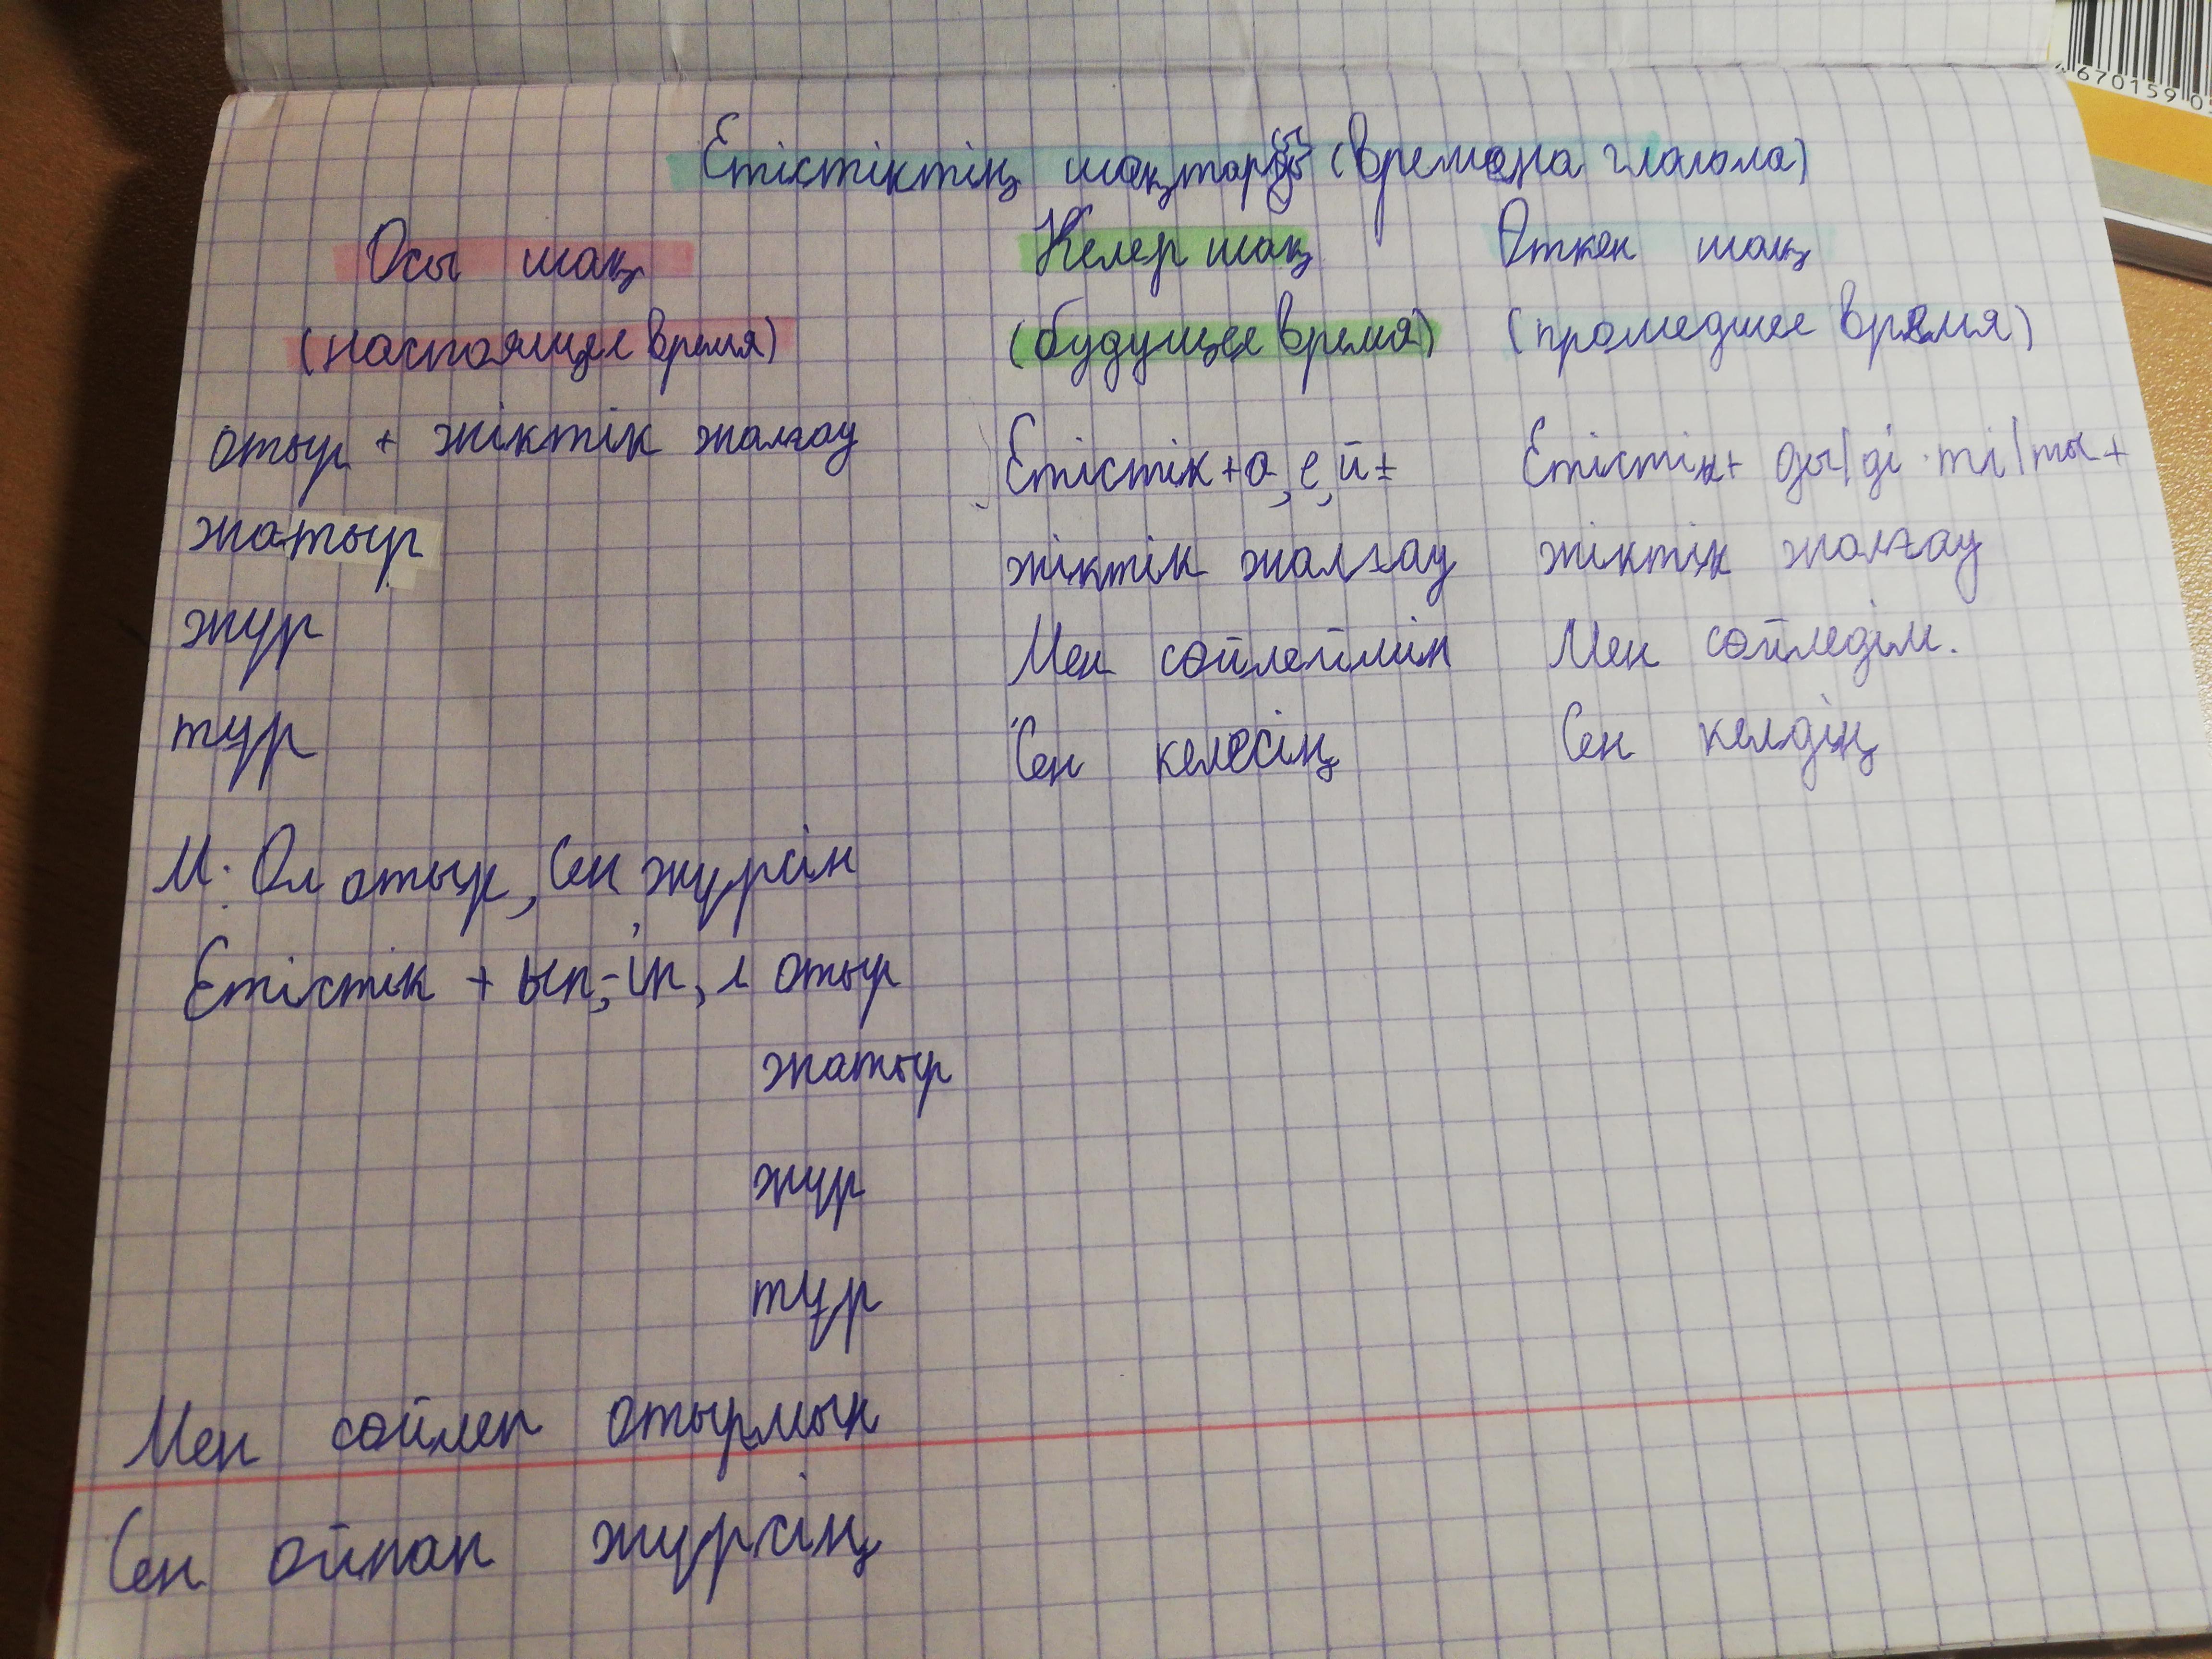 Етістіктің шақтары (времена глагола)
Осы шақ
(настоящее время)
отыр + жіктік жалғау
жатыр
жүр
тұр
М: Ол отыр, Сен жүрсін
Етістік + ып,-іп, п отыр
жатыр
жүр
тұр
Мен сөйлеп отырмын
Сен ойпап жүрсің
Келер шақ
(будущее время)
Етістік+а, е, й±
жіктік жалғау
Мен сөйлеймін
Сен келесің
Өткен шақ
(прошедшее время)
Етістік+ ды/ді ти/ты+
жіктік жалғау
Мен сөйледім.
Сен келдің
670159